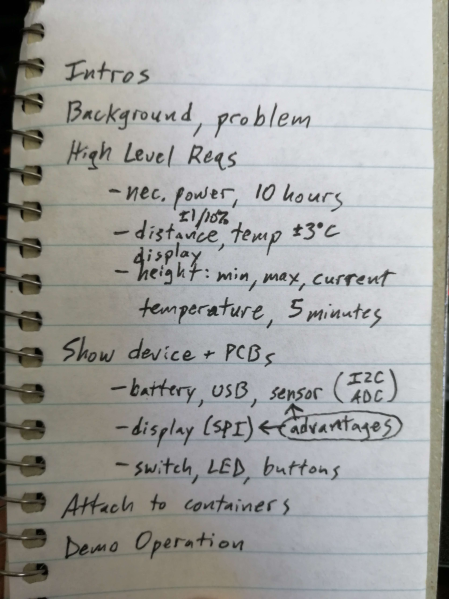 Intros
Background, problem
High Level Reqs
- nec. power, 10 hours
±1/10%
- distance, temp ±3°C
display
- height: min, max, current
temperature, 5 minutes
Show device + PCBs
- battery, USB, sensor (I2C
ADC)
- display (SPI) ← advantages
- switch, LED, buttons
Attach to containers
Demo Operation